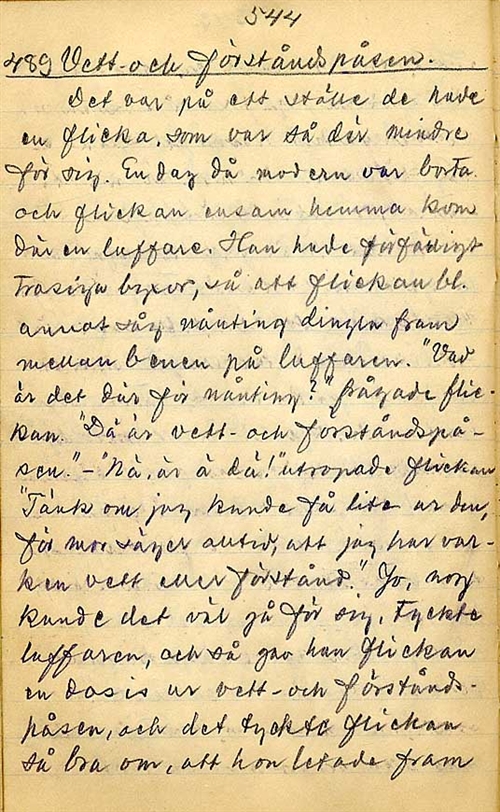 544
489 Vett- och förståndspåsen.
Det var på ett ställe de hade
en flicka, som var så där mindre
för sig. En dag då modern var borta
och flickan ensam hemma kom
där en luffare. Han hade förfärligt
trasiga byxor, så att flickan bl.
annat såg nånting dingla fram
mellan benen på luffaren. "Vad
är det där för nånting?" frågade flic-
kan. "Dä är vett- och förståndspå-
sen." – "Nä, är ä dä!" utropade flickan
"Tänk om jag kunde få lite ur den,
för mor säger alltid, att jag har var-
ken vett eller förstånd." Jo, nog
kunde det väl gå för sig, tyckte
luffaren, och så gav han flickan
en dosis ur vett- och förstånds-
påsen, och det tyckte flickan
så bra om, att hon letade fram